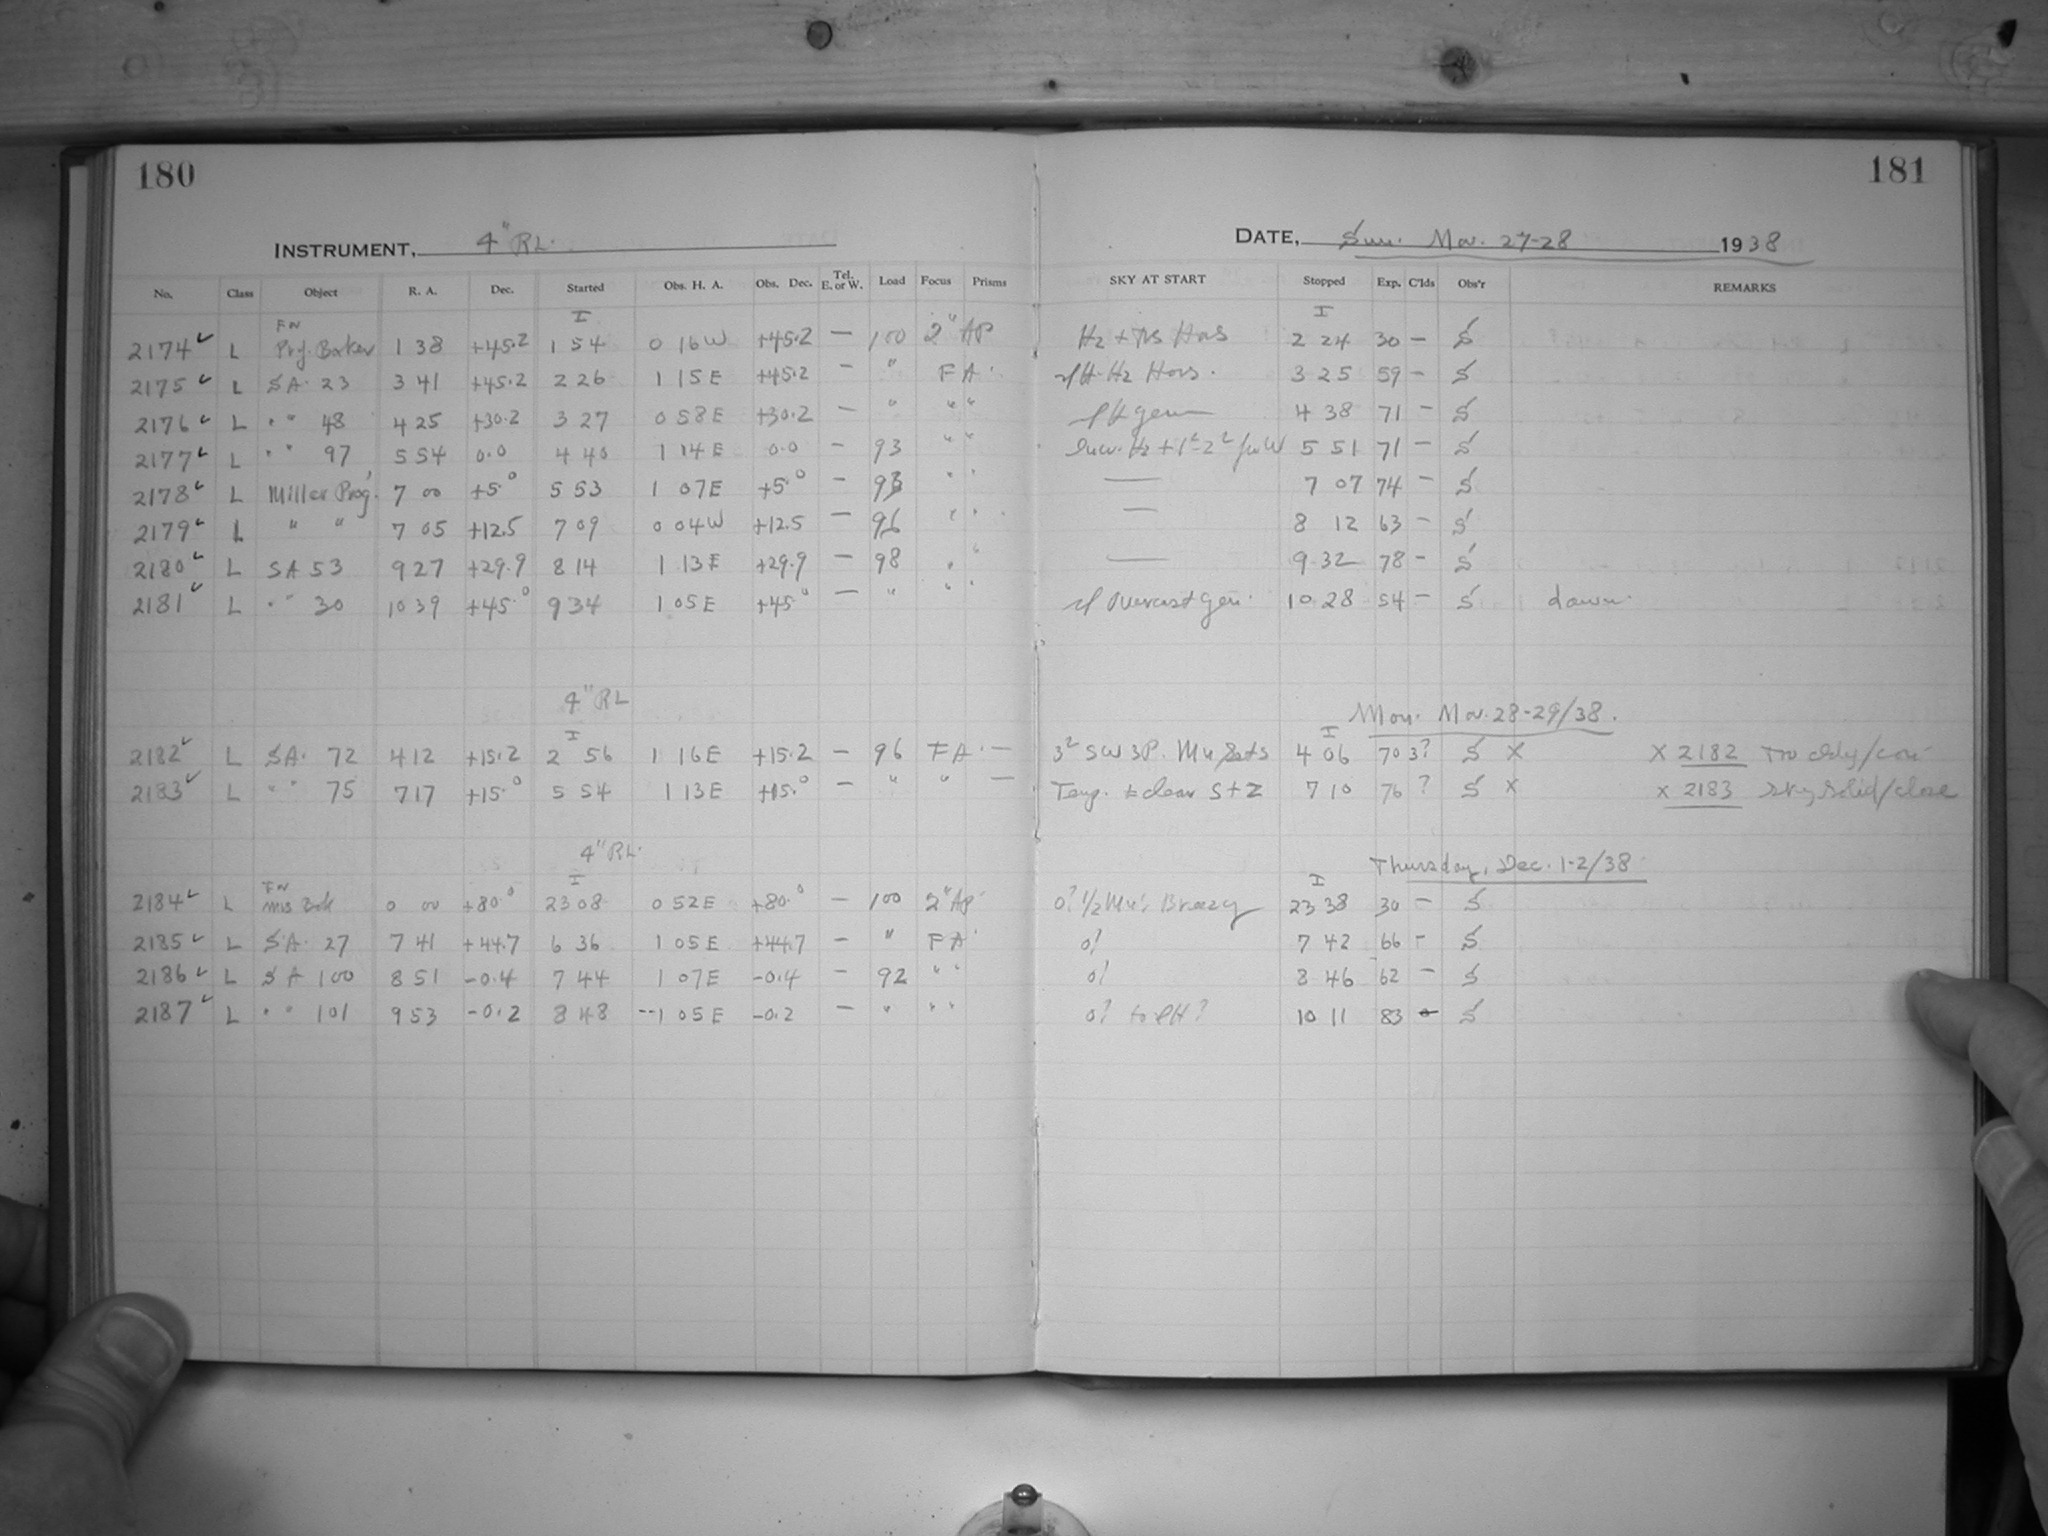 180
181
INSTRUMENT, 4" RL.
DATE, Sun. Nov. 27-28 1938
No. Class Object R. A. Dec. Started Obs. H. A. Obs. Dec. Tel. E. or W. Load Focus Prisms SKY AT START Stopped Exp. C'lds Obs'r REMARKS
2174 L Prof. Barker 1 38 +45.2 1 54 0 16W +45.2 — 100 2" AP 2 24 30 — S
2175 L SA. 23 3 41 +45.2 2 26 1 15E +45.2 — " FA. 3 25 59 — S
2176 L " " 48 4 25 +30.2 3 27 0 58E +30.2 — " " " 4 38 71 — S
2177 L " " 97 5 54 0.0 4 40 1 14E 0.0 — 93 " " 5 51 71 — S
2178 L Miller Prog. 7 00 +5.° 5 53 1 07E +5.° — 93 " " — 7 07 74 — S
2179 L " " 7 05 +12.5 7 09 0 04W +12.5 — 96 " " — 8 12 63 — S
2180 L SA 53 9 27 +29.9 8 14 1 13E +29.9 — 98 " " — 9 32 78 — S
2181 L " " 30 10 39 +45.° 9 34 1 05E +45.° — " " " Overcast Gen. 10 28 54 — S dawn.
4" RL
Mon. Nov. 28-29/38.
2182 L SA. 72 4 12 +15.2 2 56 1 16E +15.2 — 96 FA. — 4 06 70 3? S X X 2182
2183 L " " 75 7 17 +15.° 5 54 1 13E +15.° — " " — Temp. clear S+Z 7 10 76 ? S X X 2183 Sky solid/close
4" RL.
Thursday, Dec. 1-2/38
2184 L 0 00 +80.° 23 08 0 52E +80.° — 100 2" Ap. 0? 1/2 Breezy 23 38 30 — S
2185 L SA. 27 7 41 +44.7 6 36 1 05E +44.7 — " FA. 0? 7 42 66 — S
2186 L SA 100 8 51 -0.4 7 44 1 07E -0.4 — 92 " " 0? 8 46 62 — S
2187 L " " 101 9 53 -0.2 8 48 1 05E -0.2 — " " " 0? to 10 11 83 — S